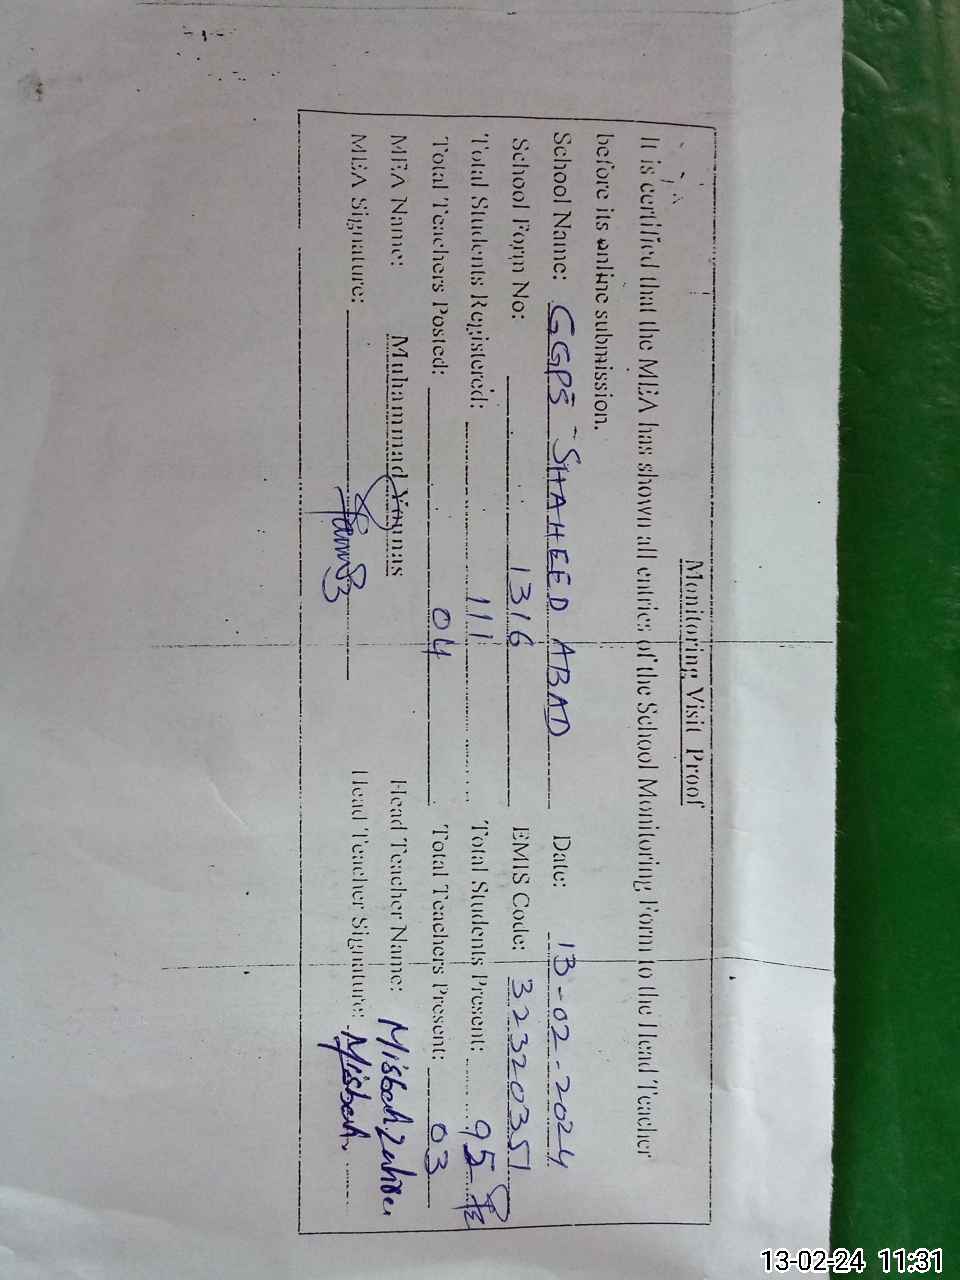 Monitoring Visit Proof
It is certified that the MEA has shown all entries of the School Monitoring Form to the Head Teacher
before its online submission.
School Name: GGPS SHAHEED ABAD Date: 13-02-2024
School Form No: 1316 EMIS Code: 32320351
Total Students Registered: 111 Total Students Present: 95
Total Teachers Posted: 04 Total Teachers Present: 03
MEA Name: Muhammad Younas Head Teacher Name: Misbah
MEA Signature: Head Teacher Signature: Misbah
13-02-24 11:31